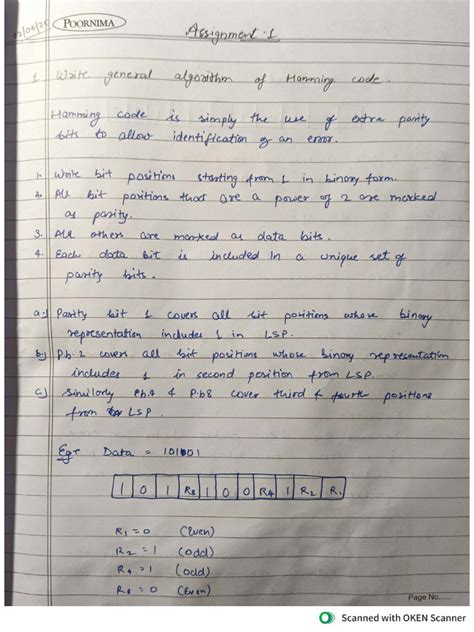 02/04/25
POORNIMA
Assignment-1
1. Write general algorithm of Hamming code.
Hamming code is simply the use of extra parity
bits to allow identification of an error.
1. Write bit positions starting from 1 in binary form.
2. All bit positions that are a power of 2 are marked
as parity.
3. All others are marked as data bits.
4. Each data bit is included in a unique set of
parity bits.
a) Parity bit 1 covers all bit positions whose binary
representation includes 1 in LSP.
b) P.b. 2 covers all bit positions whose binary representation
includes 1 in second position from LSP.
c) Similarly P.b. 4 & P.b 8 cover third & fourth positions
from LSP.
Eg:- Data = 101001
1 0 1 R8 1 0 0 R4 1 R2 R1
R1 = 0 (Even)
R2 = 1 (odd)
R4 = 1 (odd)
R8 = 0 (Even)
Page No......
Scanned with OKEN Scanner